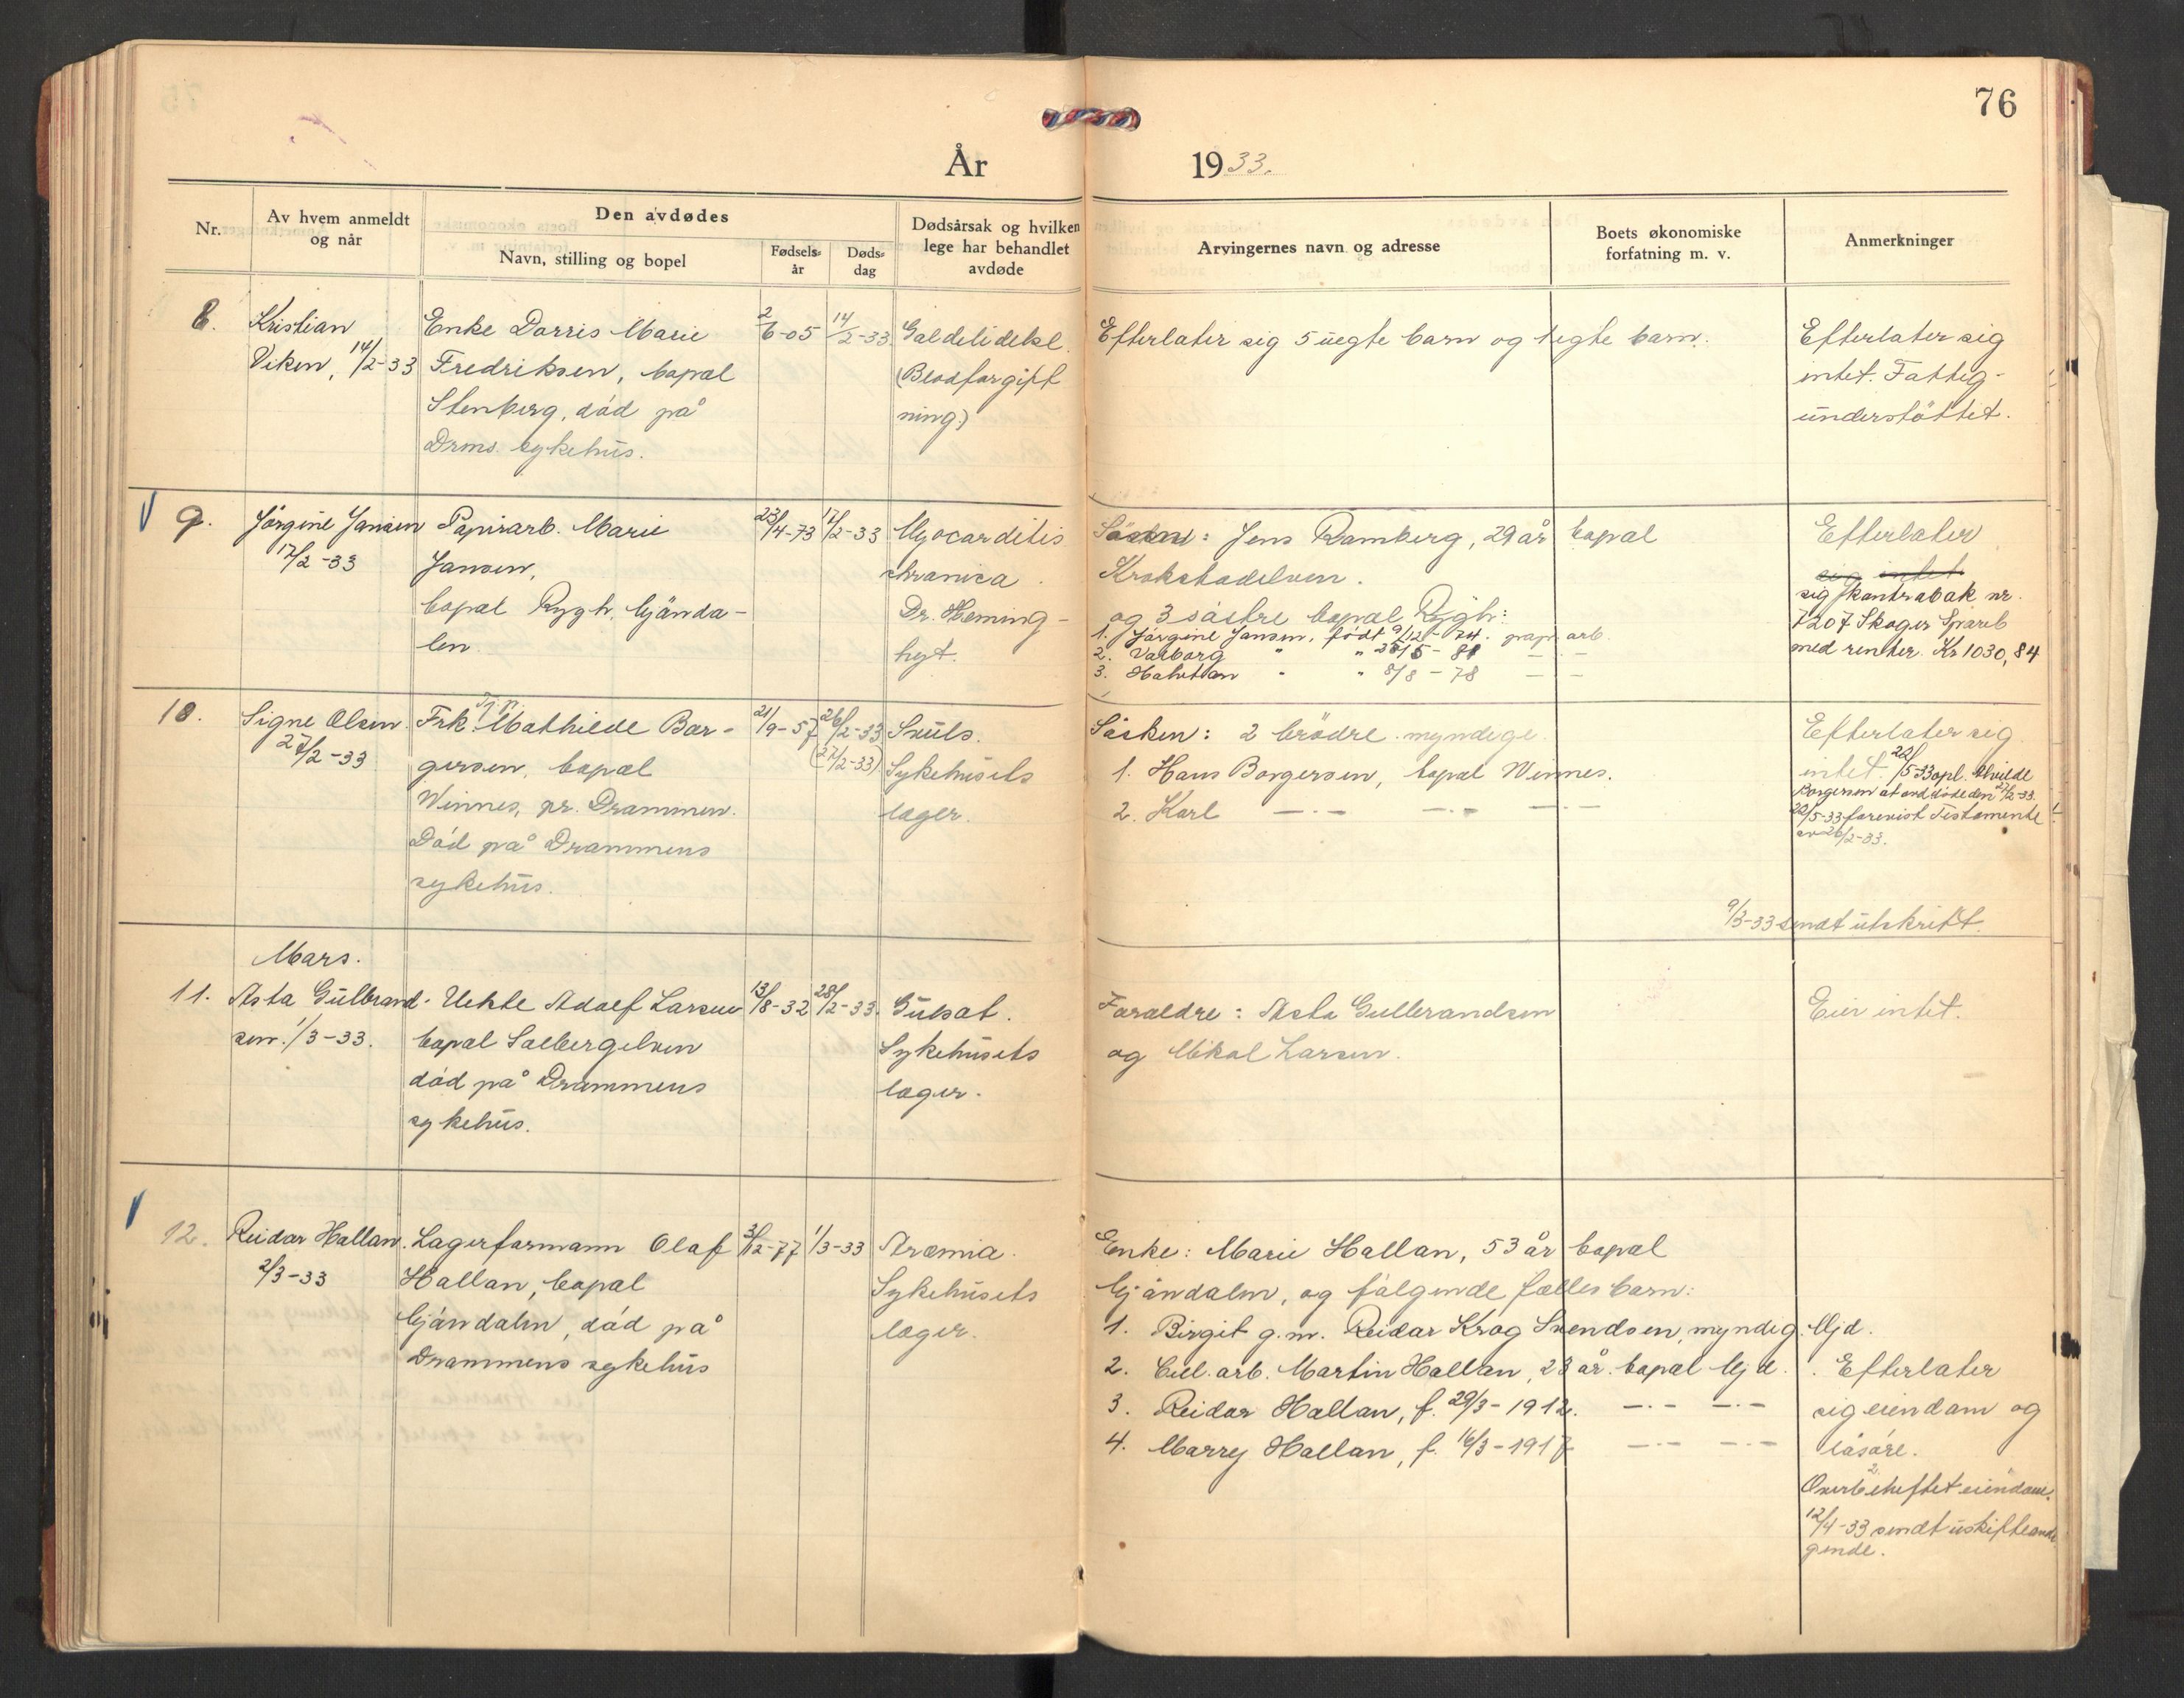 76
År 1933.
Nr.
Av hvem anmeldt
og når
Den avdødes
Navn, stilling og bopel
Fødsels-
år
Døds-
dag
Dødsårsak og hvilken
lege har behandlet
avdøde
Arvingernes navn og adresse
Boets økonomiske
forfatning m. v.
Anmerkninger
8.
Kristian
Viken, 14/2-33
Enke Dorris Marie
Fredriksen, bopal
Stenberg, död på
Drms. sykehus.
2/6-05
14/2-33
(Blodforgift
ning)
Efterlater sig 5 uegte barn og 1 egte barn.
Efterlater sig
intet. Fattig-
understöttet.
9.
Jörgine Jansen
17/2-33
Papirarb. Marie
Jansen,
bopal Rygh, Mjönda-
len
23/4-73
17/2-33
Myocarditis
chronica.
Dr. Heming-
hyt.
Jens Ramberg, 29 år bopal
Krokstadelven.
og 3 söstre bopal Rygh:
1. Jörgine Jansen, födt 9/12-74. pap. arb.
2. Valborg " "
3. " " 8/8-78 — —
Efterlater
sig intet
sig kontrabok nr.
7207 Skoger Spareb
med renter. Kr 1030,84
10.
Signe Olsen.
27/2-33
Frk. Mathilde Bor-
gersen, bopal
Winnes, pr. Drammen.
Död på Drammens
sykehus.
21/9-57
26/2-33
(27/2-33)
Sykehusets
læger.
Söcken: 2 brödre myndige.
1. Hans Borgersen, bopal Winnes.
2. Karl —"— —"— —
Efterlater sig
intet. 22/5-33 opl.
Borgersen at avd. döde den 27/2-33.
22/5-33 forevist Testamente
av 26/2-33.
9/3-33 sendt utskrift.
Mars.
11.
Asta Gulbrand-
sen. 1/3-33.
Uekte Adolf Larsen
bopal Solbergelven
död på Drammens
sykehus.
13/8-32
28/2-33.
Gulsot.
Sykehusets
læger.
Foreldre: Asta Gulbrandsen
og Mikal Larsen.
Eier intet.
12.
Reidar Hallan.
2/3-33
Lagerformann Olaf
Hallan, bopal
Mjöndalen, död på
Drammens sykehus
3/12-77
1/3-33
Uræmia.
Sykehusets
læger.
Enke: Marie Hallan, 53 år bopal
Mjöndalen, og fölgende fælles barn:
1. Birgit g.m. Reidar Krog Svendsen, myndig. Mjd.
2. Cell. arb. Martin Hallan, 23 år. bopal Mjd.
3. Reidar Hallan, f. 29/3-1912. —"— —"—
4. Marry Hallan, f. 16/3-1917 —"— —"—
Efterlater
sig eiendom og
lösöre.
Overbeheftet eiendom.
12/4-33 sendt uskifteand
gende.